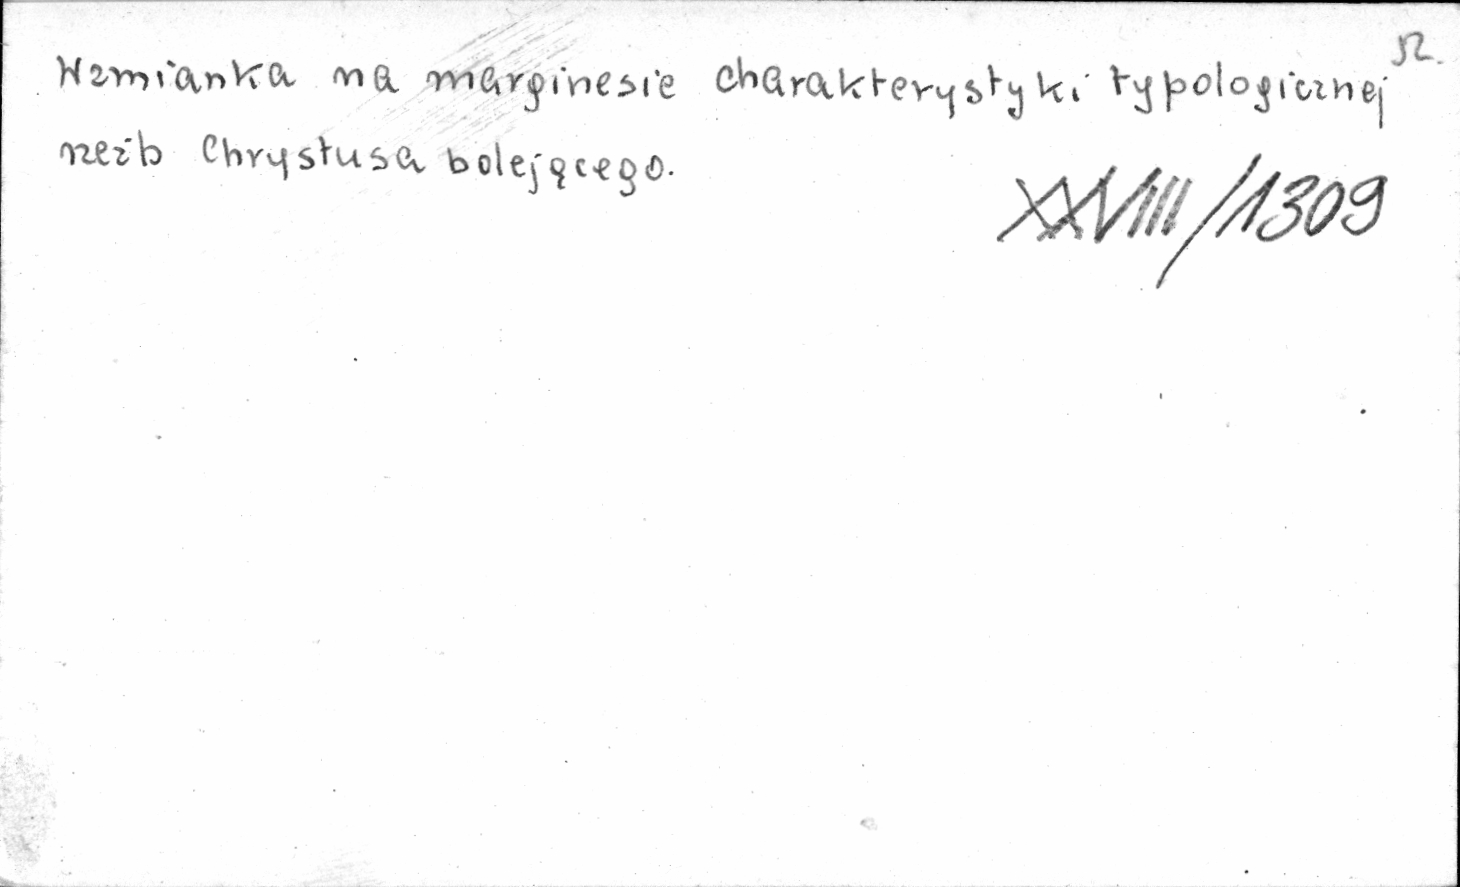 Wzmianka na marginesie charakterystyki typologicznej
rzeźb Chrystusa bolejącego.
XXVIII/1309